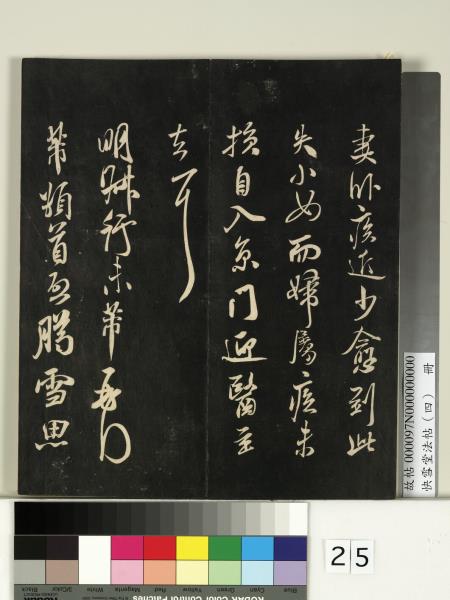 妻臥疾近少愈到此
失小女而婦屬疾未
損自入京門迎醫至
去耳
明歸行未芾再行
芾頓首啟騰雪思
故帖 000097N000000000
快雪堂法帖（四） 冊
25
Blue Cyan Green Yellow Red Magenta White 3/Color Black
KODAK Color Control Patches